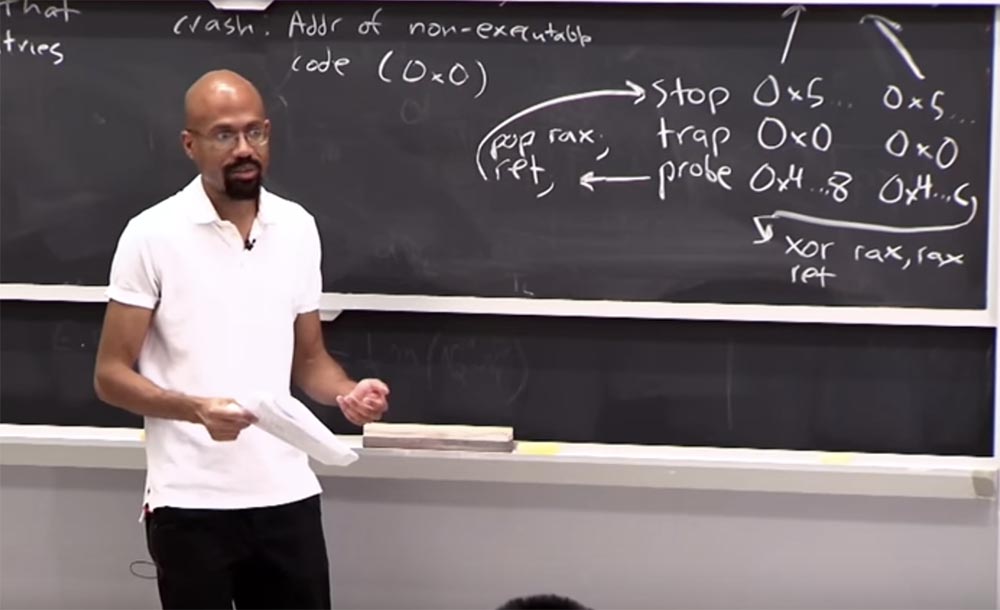 That
tries
crash: Addr of non-executable
code (0x0)
stop 0x5... 0x5...
trap 0x0 0x0
probe 0x4...8 0x4...c
pop rax;
ret;
xor rax, rax
ret